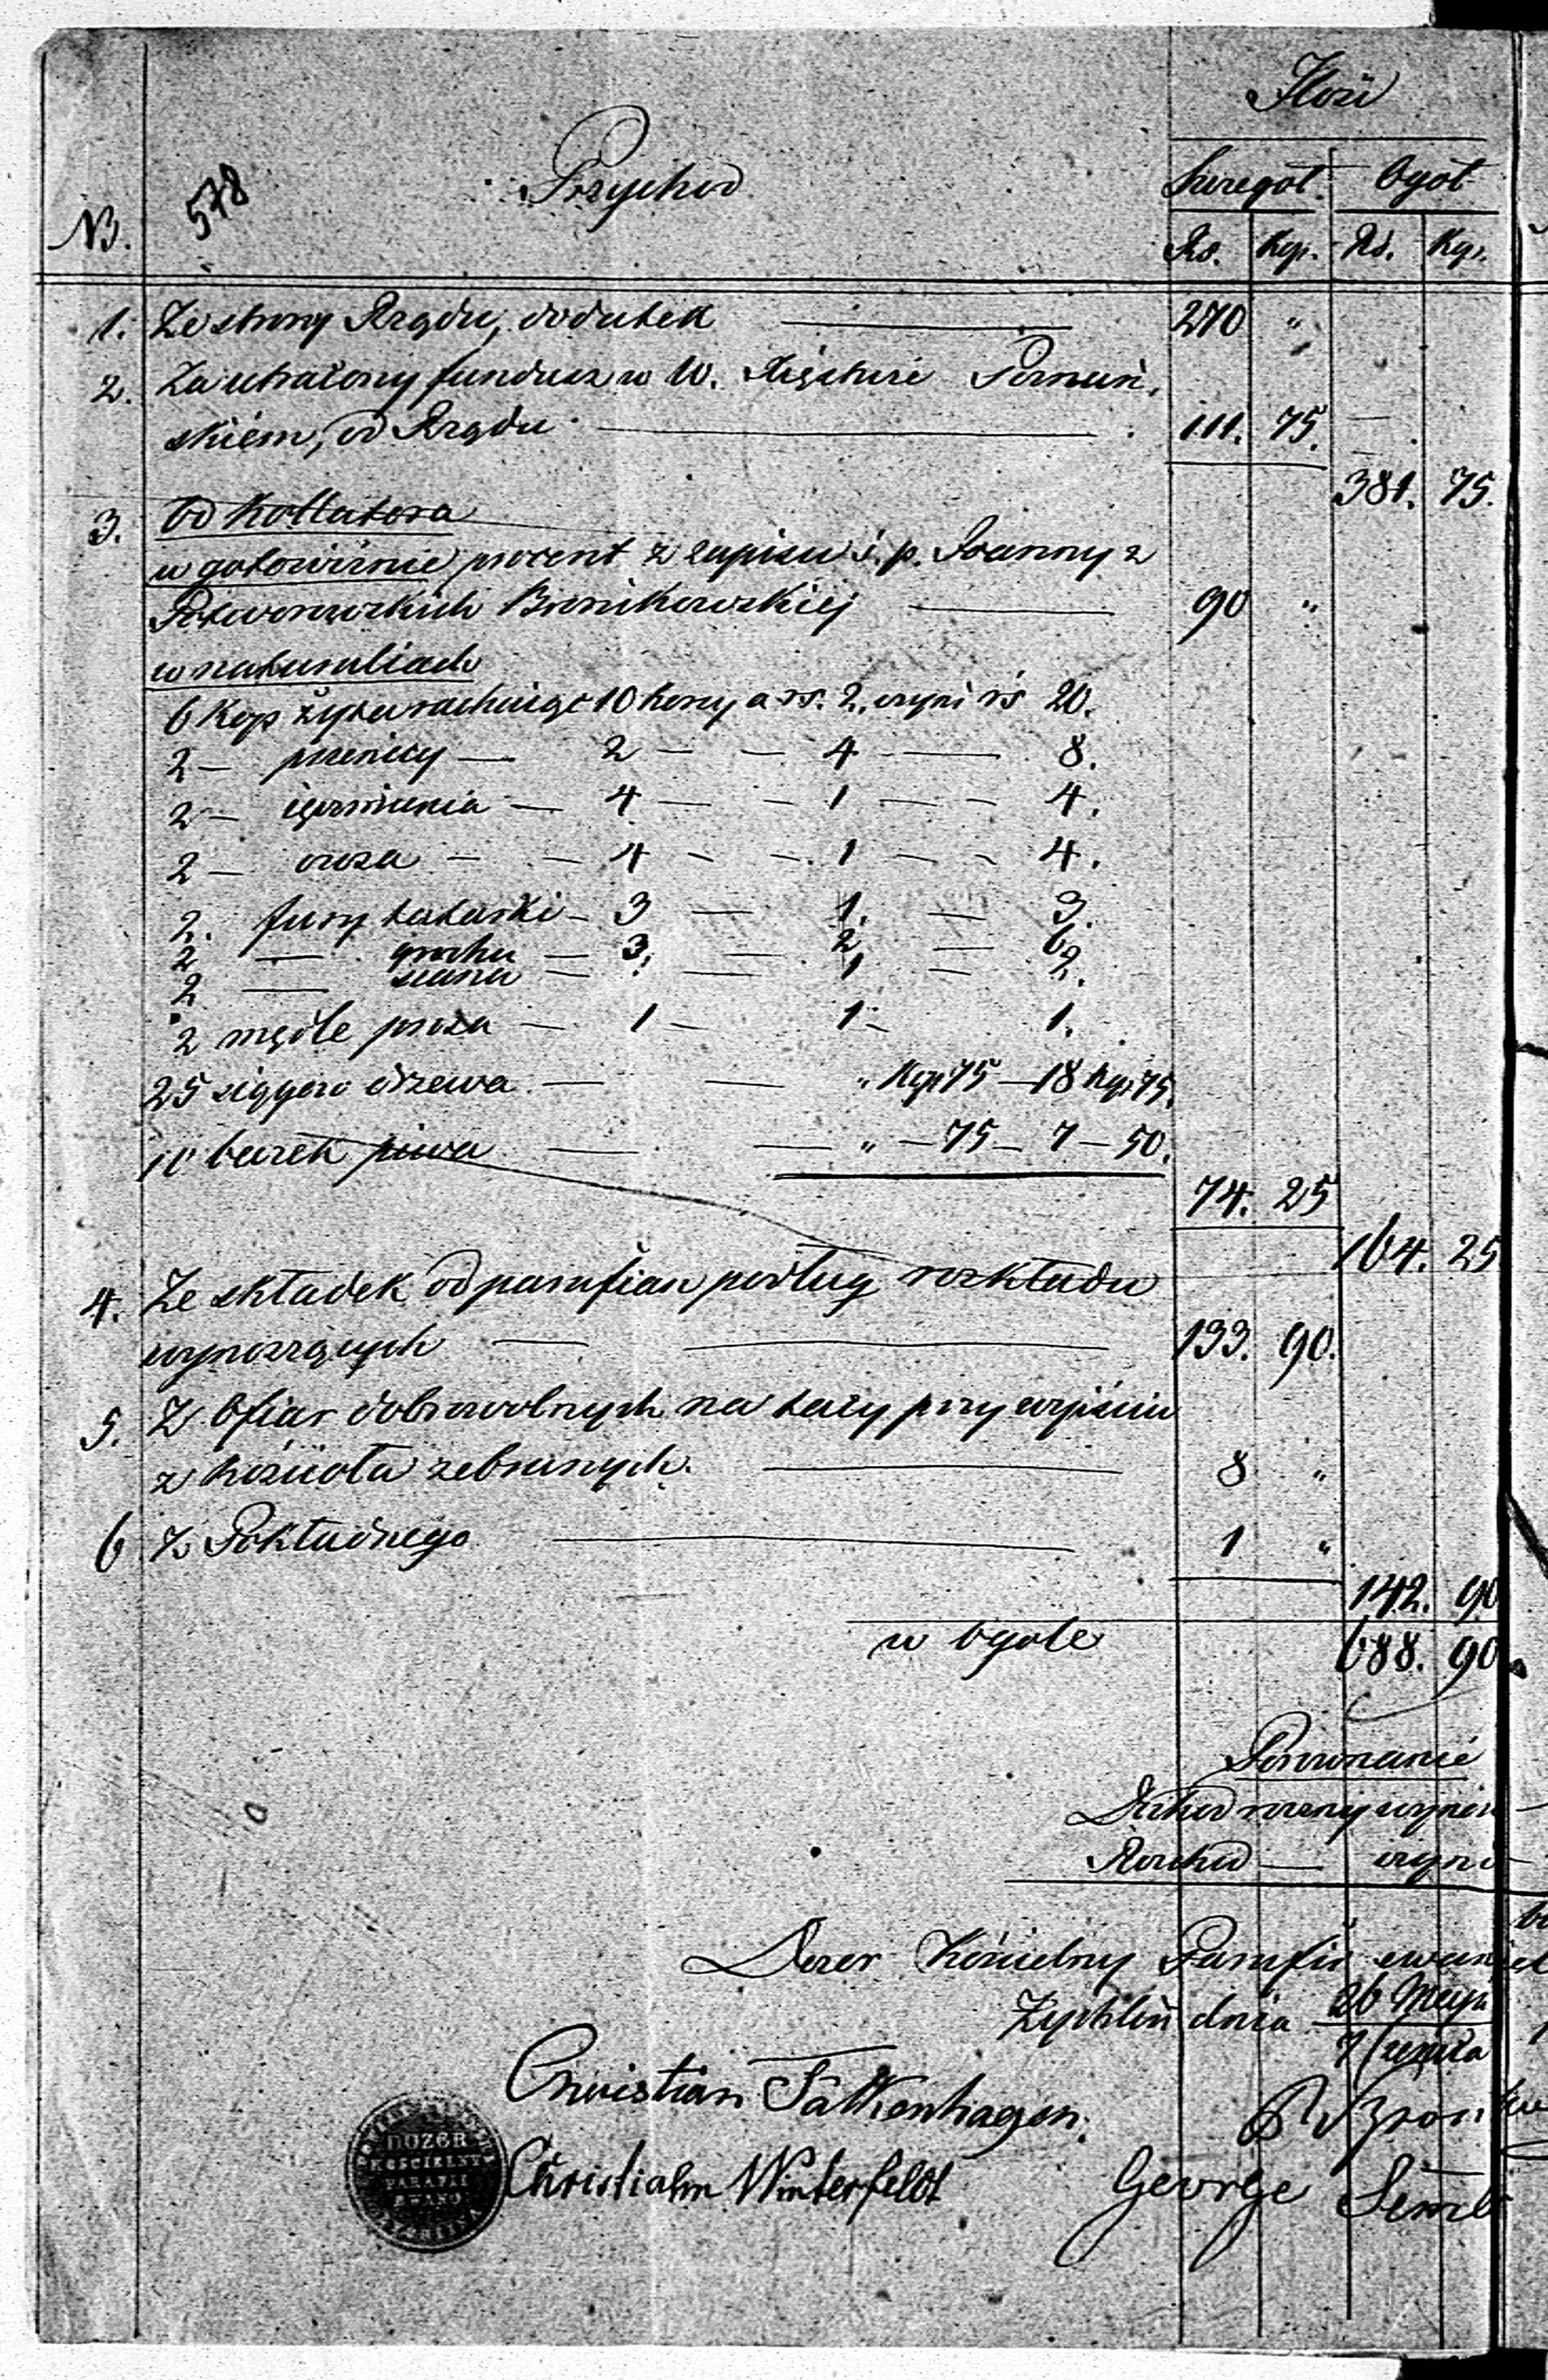 Ilość
578
Przychod
Szczegół. Ogół
N3.
Rs. Kop. Rs. Kop.
1. Ze strony Rządu, dodatek 270 "
2. Za utracony fundusz w W. Xięstwie Poznań,
skiém, od Rządu 111. 75.
381. 75.
3. Od Kollatora
w gotowiźnie procent z zapisu ś. p. Joanny z
Potworowskich Bronikowskiej 90 "
w naturaliach
6 Kop żyta rachując 10 korcy a rs. 2. czyni rs 20.
2 — pszenicy — 2 — — 4 — 8.
2 — jęczmienia — 4 — — 1 — — 4.
2 — owsa — — 4 — — 1 — — 4.
2. fury tatarki — 3 — 1. — 3.
2 — grochu — 3. — 2 — 6
2 — siana — — 1 — 2.
2 mędle prosa — 1 — 1 — 1.
25 siągów drzewa — — " Kop 75 — 18 Kop 75.
10 beczek piwa — — " — 75 — 7 — 50.
74. 25
164. 25
4. Ze składek od parafian podług rozkładu
wynoszących 133. 90.
5. Z Ofiar dobrowolnych na tacy przy wyjściu
z kościoła zebranych. 8 "
6 Z Pokładnego 1 "
142. 90
w ogole 688. 90
Porownanie
Dochod roczny wynosi
Rozchod — czyni
Dozor Kościelny Parafii
Żychlin dnia 26 Maja
7 Czerwca
Christian Falkenhagen.
George
Christiahn Winterfeldt
DOZÓR
KOŚCIELNY
PARAFII